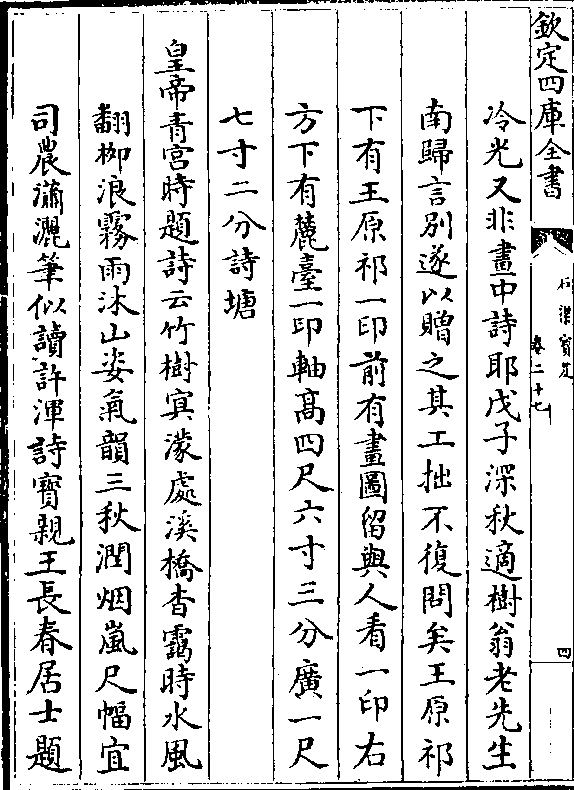 欽定四庫全書
石渠寶笈
卷二十七
四
冷光又非畫中詩耶戊子深秋適樹翁老先生
南歸言別遂以贈之其工拙不復問矣王原祁
下有王原祁一印前有畫圖留與人看一印右
方下有麓臺一印軸髙四尺六寸三分廣一尺
七寸二分詩塘
皇帝青宮時題詩云竹樹㝠濛處溪橋杳靄時水風
翻栁浪霧雨沐山姿氣韻三秋潤烟嵐尺幅宜
司農瀟灑筆似讀許渾詩寶親王長春居士題